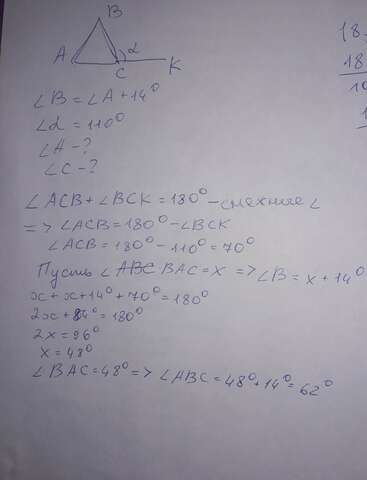 B
A
α
C
K
∠B = ∠A + 14°
∠α = 110°
∠A - ?
∠C - ?
∠ACB + ∠BCK = 180° - смежные ∠
=> ∠ACB = 180° - ∠BCK
∠ACB = 180° - 110° = 70°
Пусть ∠BAC = x => ∠B = x + 14°
x + x + 14° + 70° = 180°
2x + 84° = 180°
2x = 96°
x = 48°
∠BAC = 48° => ∠ABC = 48° + 14° = 62°
18
18
10
1